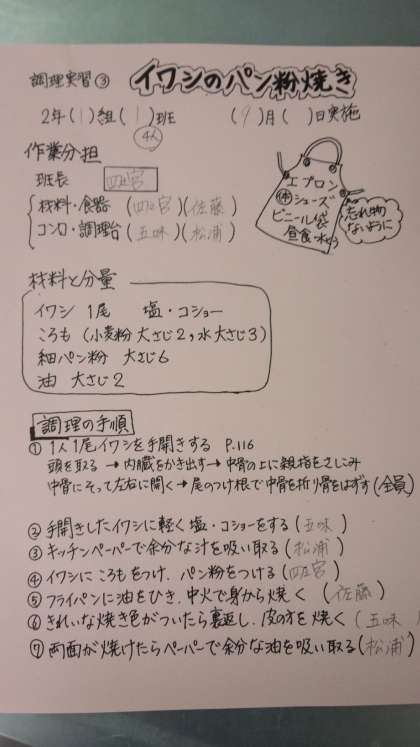 調理実習③ イワシのパン粉焼き
2年(1)組(1)班 (9)月( )日実施
4人
作業分担
班長 四宮
材料・食器 (四宮)(佐藤)
コンロ・調理台 (五味)(松浦)
エプロン
体シューズ
ビニール袋
昼食・水とう
忘れ物
ないように
材料と分量
イワシ 1尾 塩・コショー
ころも (小麦粉 大さじ2, 水大さじ3)
細パン粉 大さじ6
油 大さじ2
調理の手順
① 1人1尾イワシを手開きする P.116
頭を取る → 内臓をかき出す → 中骨の上に親指をさしこみ
中骨にそって左右に開く → 尾のつけ根で中骨を折り骨をはずす (全員)
② 手開きしたイワシに軽く塩・コショーをする (五味)
③ キッチンペーパーで余分な汁を吸い取る (松浦)
④ イワシに ころもをつけ, パン粉をつける (四宮)
⑤ フライパンに油をひき, 中火で身から焼く (佐藤)
⑥ きれいな焼き色がついたら裏返し, 皮の方を焼く (五味)
⑦ 両面が焼けたらペーパーで余分な油を吸い取る (松浦)